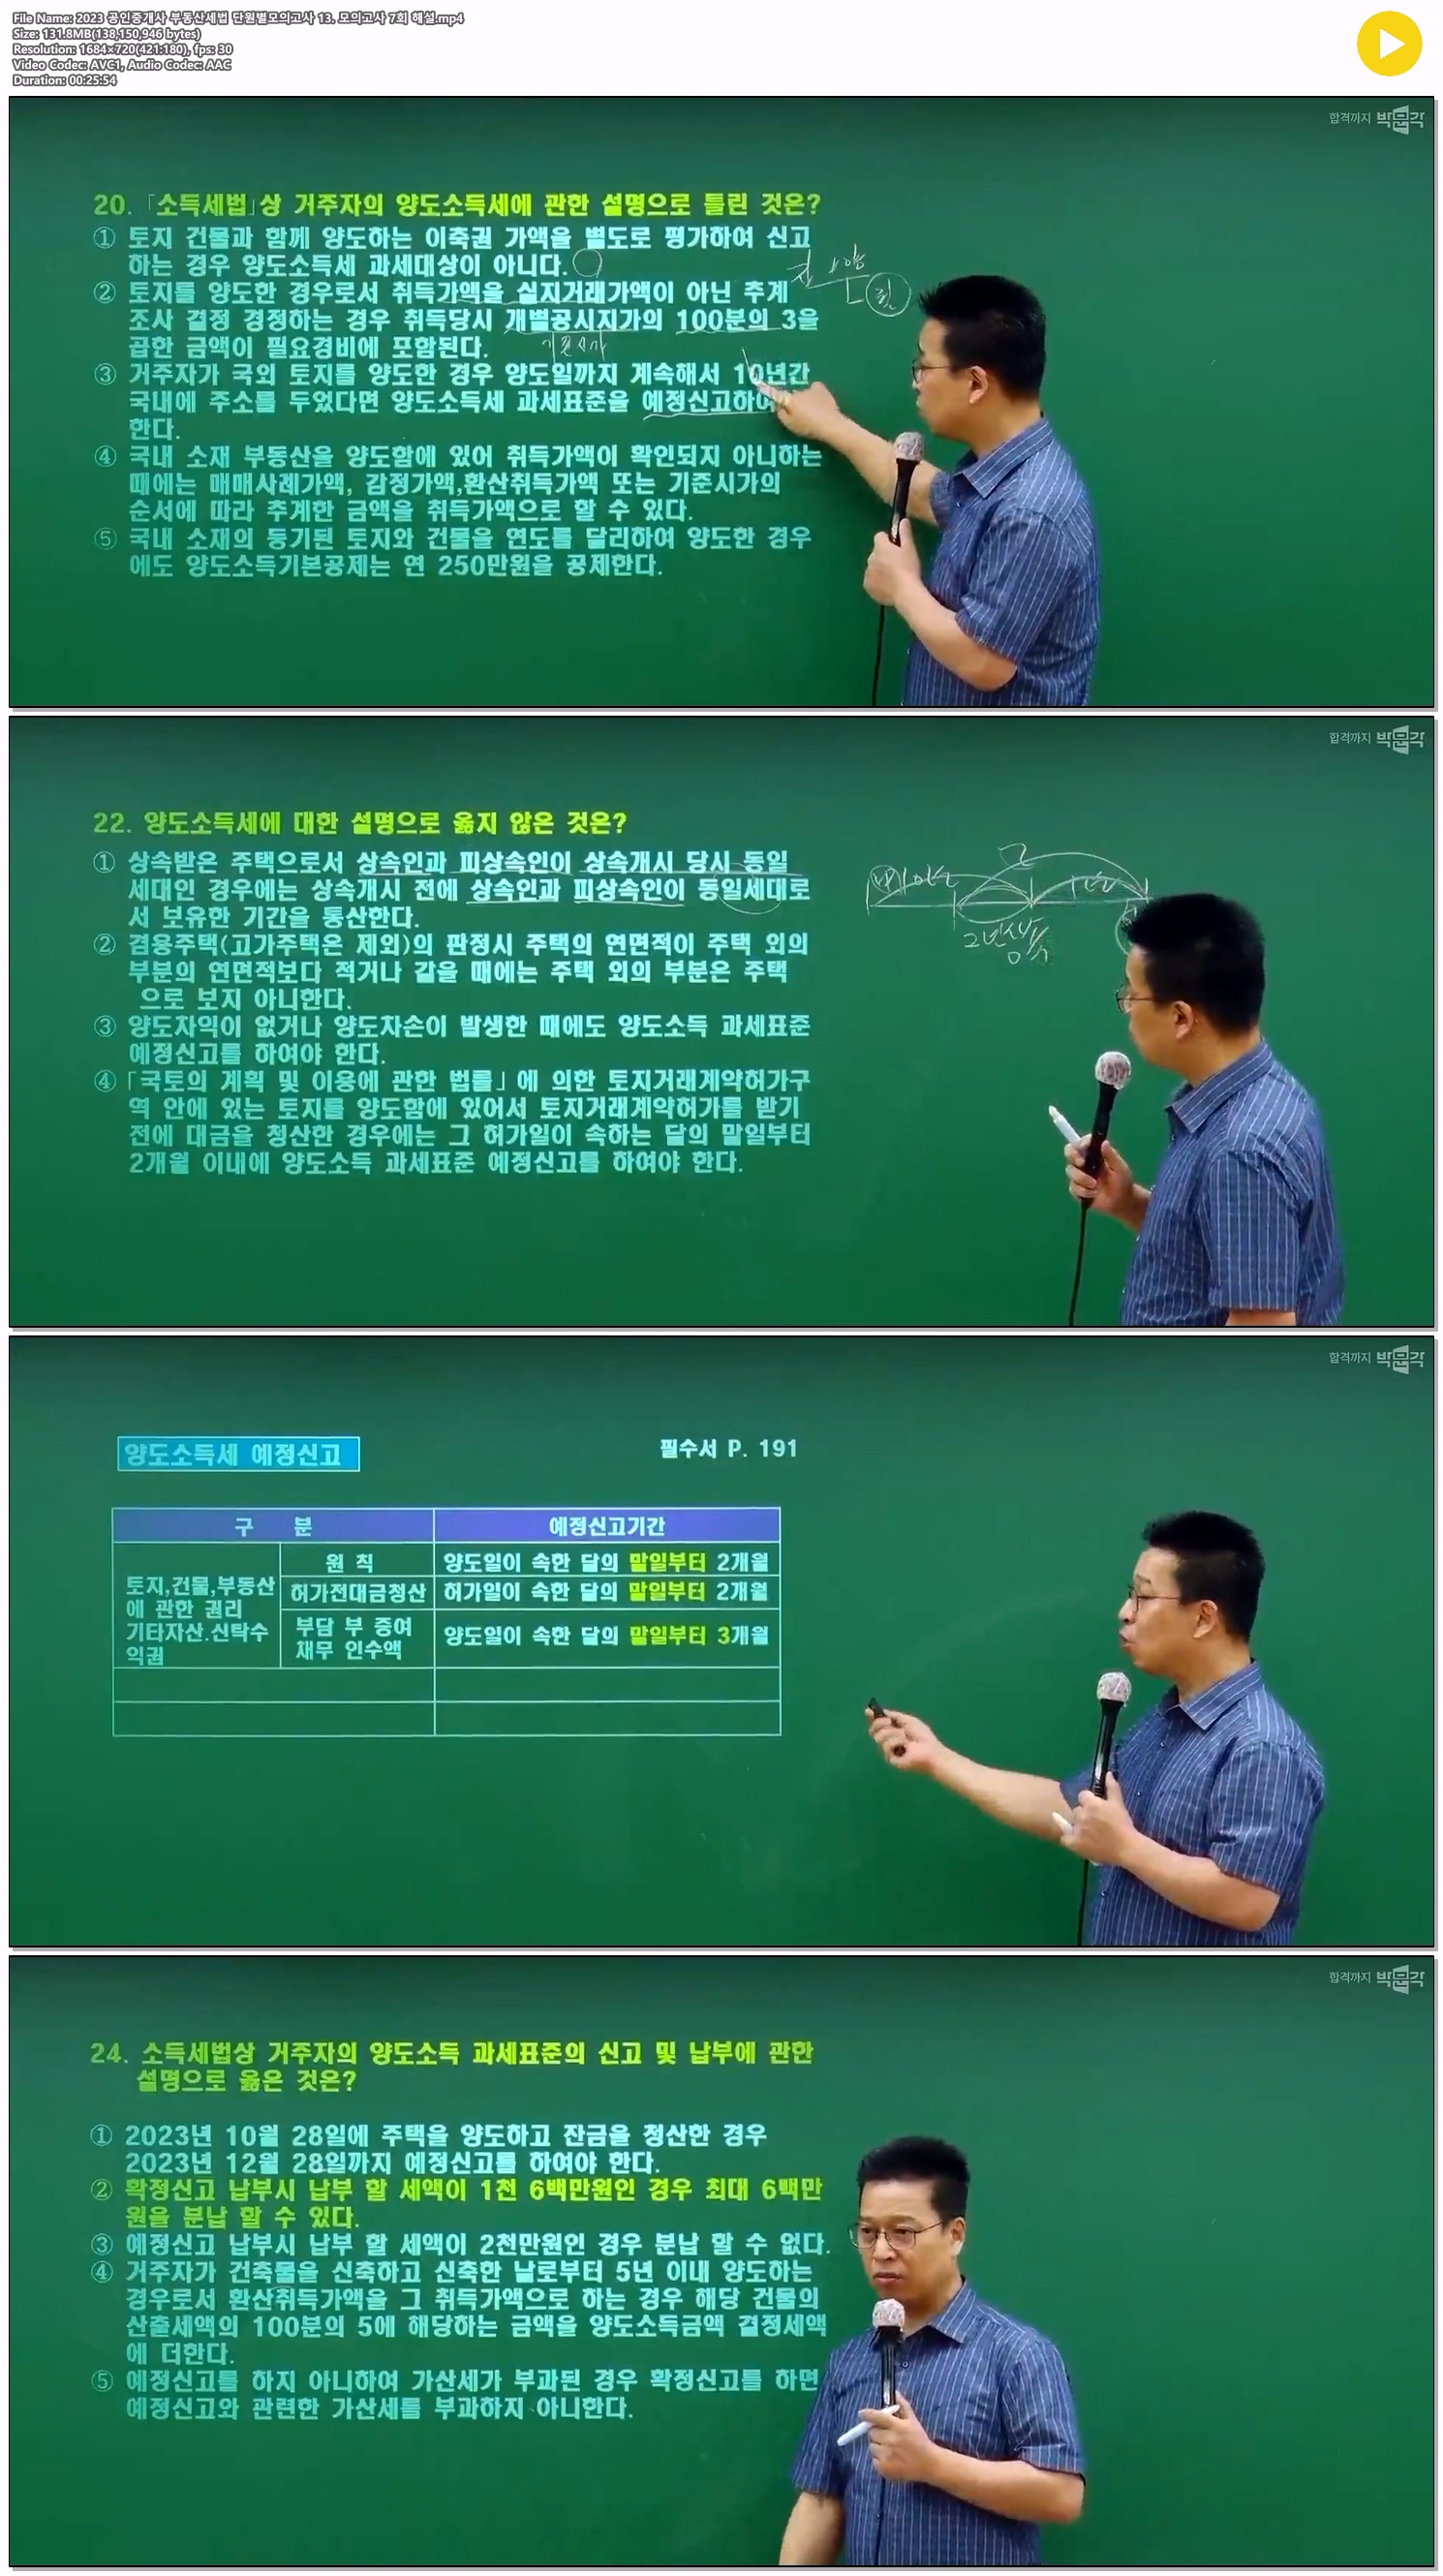 File Name: 2023 공인중개사 부동산세법 단원별모의고사 13. 모의고사 7회 해설.mp4
Size: 131.8MB(138,150,946 bytes)
Resolution: 1684×720(421:180), fps: 30
Video Codec: AVC1, Audio Codec: AAC
Duration: 00:25:54
합격까지 박문각
20. 「소득세법」상 거주자의 양도소득세에 관한 설명으로 틀린 것은?
① 토지 건물과 함께 양도하는 이축권 가액을 별도로 평가하여 신고
하는 경우 양도소득세 과세대상이 아니다.
② 토지를 양도한 경우로서 취득가액을 실지거래가액이 아닌 추계
조사 결정 경정하는 경우 취득당시 개별공시지가의 100분의 3을
곱한 금액이 필요경비에 포함된다.
기준시가
③ 거주자가 국외 토지를 양도한 경우 양도일까지 계속해서 10년간
국내에 주소를 두었다면 양도소득세 과세표준을 예정신고하여
한다.
④ 국내 소재 부동산을 양도함에 있어 취득가액이 확인되지 아니하는
때에는 매매사례가액, 감정가액,환산취득가액 또는 기준시가의
순서에 따라 추계한 금액을 취득가액으로 할 수 있다.
⑤ 국내 소재의 등기된 토지와 건물을 연도를 달리하여 양도한 경우
에도 양도소득기본공제는 연 250만원을 공제한다.
합격까지 박문각
22. 양도소득세에 대한 설명으로 옳지 않은 것은?
① 상속받은 주택으로서 상속인과 피상속인이 상속개시 당시 동일
세대인 경우에는 상속개시 전에 상속인과 피상속인이 동일세대로
서 보유한 기간을 통산한다.
② 겸용주택(고가주택은 제외)의 판정시 주택의 연면적이 주택 외의
부분의 연면적보다 적거나 같을 때에는 주택 외의 부분은 주택
으로 보지 아니한다.
③ 양도차익이 없거나 양도차손이 발생한 때에도 양도소득 과세표준
예정신고를 하여야 한다.
④ 「국토의 계획 및 이용에 관한 법률」에 의한 토지거래계약허가구
역 안에 있는 토지를 양도함에 있어서 토지거래계약허가를 받기
전에 대금을 청산한 경우에는 그 허가일이 속하는 달의 말일부터
2개월 이내에 양도소득 과세표준 예정신고를 하여야 한다.
합격까지 박문각
양도소득세 예정신고
필수서 P. 191
구 분
예정신고기간
토지,건물,부동산
에 관한 권리
기타자산.신탁수
익권
원 칙
양도일이 속한 달의 말일부터 2개월
허가전대금청산
허가일이 속한 달의 말일부터 2개월
부담 부 증여
채무 인수액
양도일이 속한 달의 말일부터 3개월
합격까지 박문각
24. 소득세법상 거주자의 양도소득 과세표준의 신고 및 납부에 관한
설명으로 옳은 것은?
① 2023년 10월 28일에 주택을 양도하고 잔금을 청산한 경우
2023년 12월 28일까지 예정신고를 하여야 한다.
② 확정신고 납부시 납부 할 세액이 1천 6백만원인 경우 최대 6백만
원을 분납 할 수 있다.
③ 예정신고 납부시 납부 할 세액이 2천만원인 경우 분납 할 수 없다.
④ 거주자가 건축물을 신축하고 신축한 날로부터 5년 이내 양도하는
경우로서 환산취득가액을 그 취득가액으로 하는 경우 해당 건물의
산출세액의 100분의 5에 해당하는 금액을 양도소득금액 결정세액
에 더한다.
⑤ 예정신고를 하지 아니하여 가산세가 부과된 경우 확정신고를 하면
예정신고와 관련한 가산세를 부과하지 아니한다.